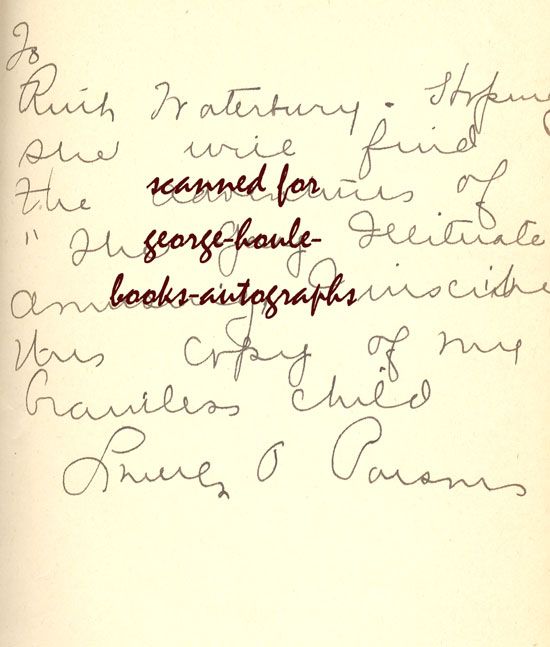 To
Ruth Waterbury. Hoping
she will find
the adventures of
scanned for
" The Gay Illiterate
george-houle-
amusing, I inscribe
books-autographs
this copy of my
brainless child
Louella O Parsons